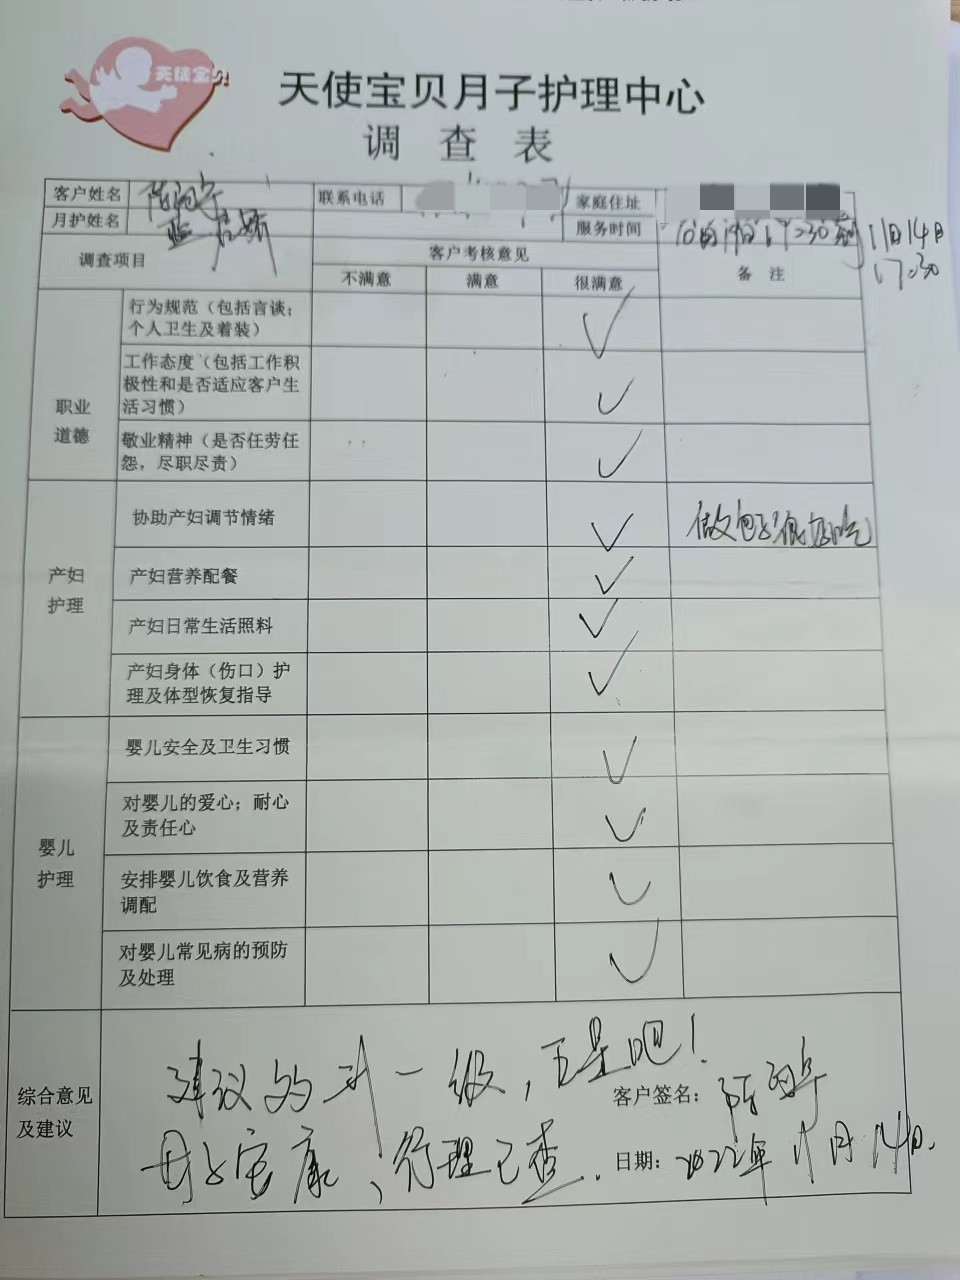 天使宝贝
天使宝贝月子护理中心
调查表
客户姓名 陈 联系电话 家庭住址
月护姓名 蓝 服务时间 10月19日17:30到11月14日
17:30
调查项目 客户考核意见 备注
不满意 满意 很满意
职业道德
行为规范（包括言谈；
个人卫生及着装）
工作态度（包括工作积
极性和是否适应客户生
活习惯）
敬业精神（是否任劳任
怨，尽职尽责）
产妇护理
协助产妇调节情绪 做包子很好吃
产妇营养配餐
产妇日常生活照料
产妇身体（伤口）护
理及体型恢复指导
婴儿护理
婴儿安全及卫生习惯
对婴儿的爱心；耐心
及责任心
安排婴儿饮食及营养
调配
对婴儿常见病的预防
及处理
综合意见
及建议
建议的升一级，五星吧！
客户签名：陈
母子安康、行理已查.
日期：2022年11月14日.